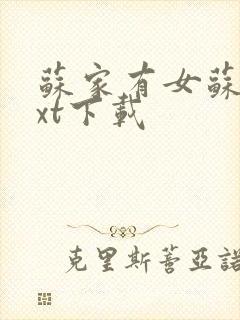 蘇家有女蘇
xt下載
克里斯蒂亞諾